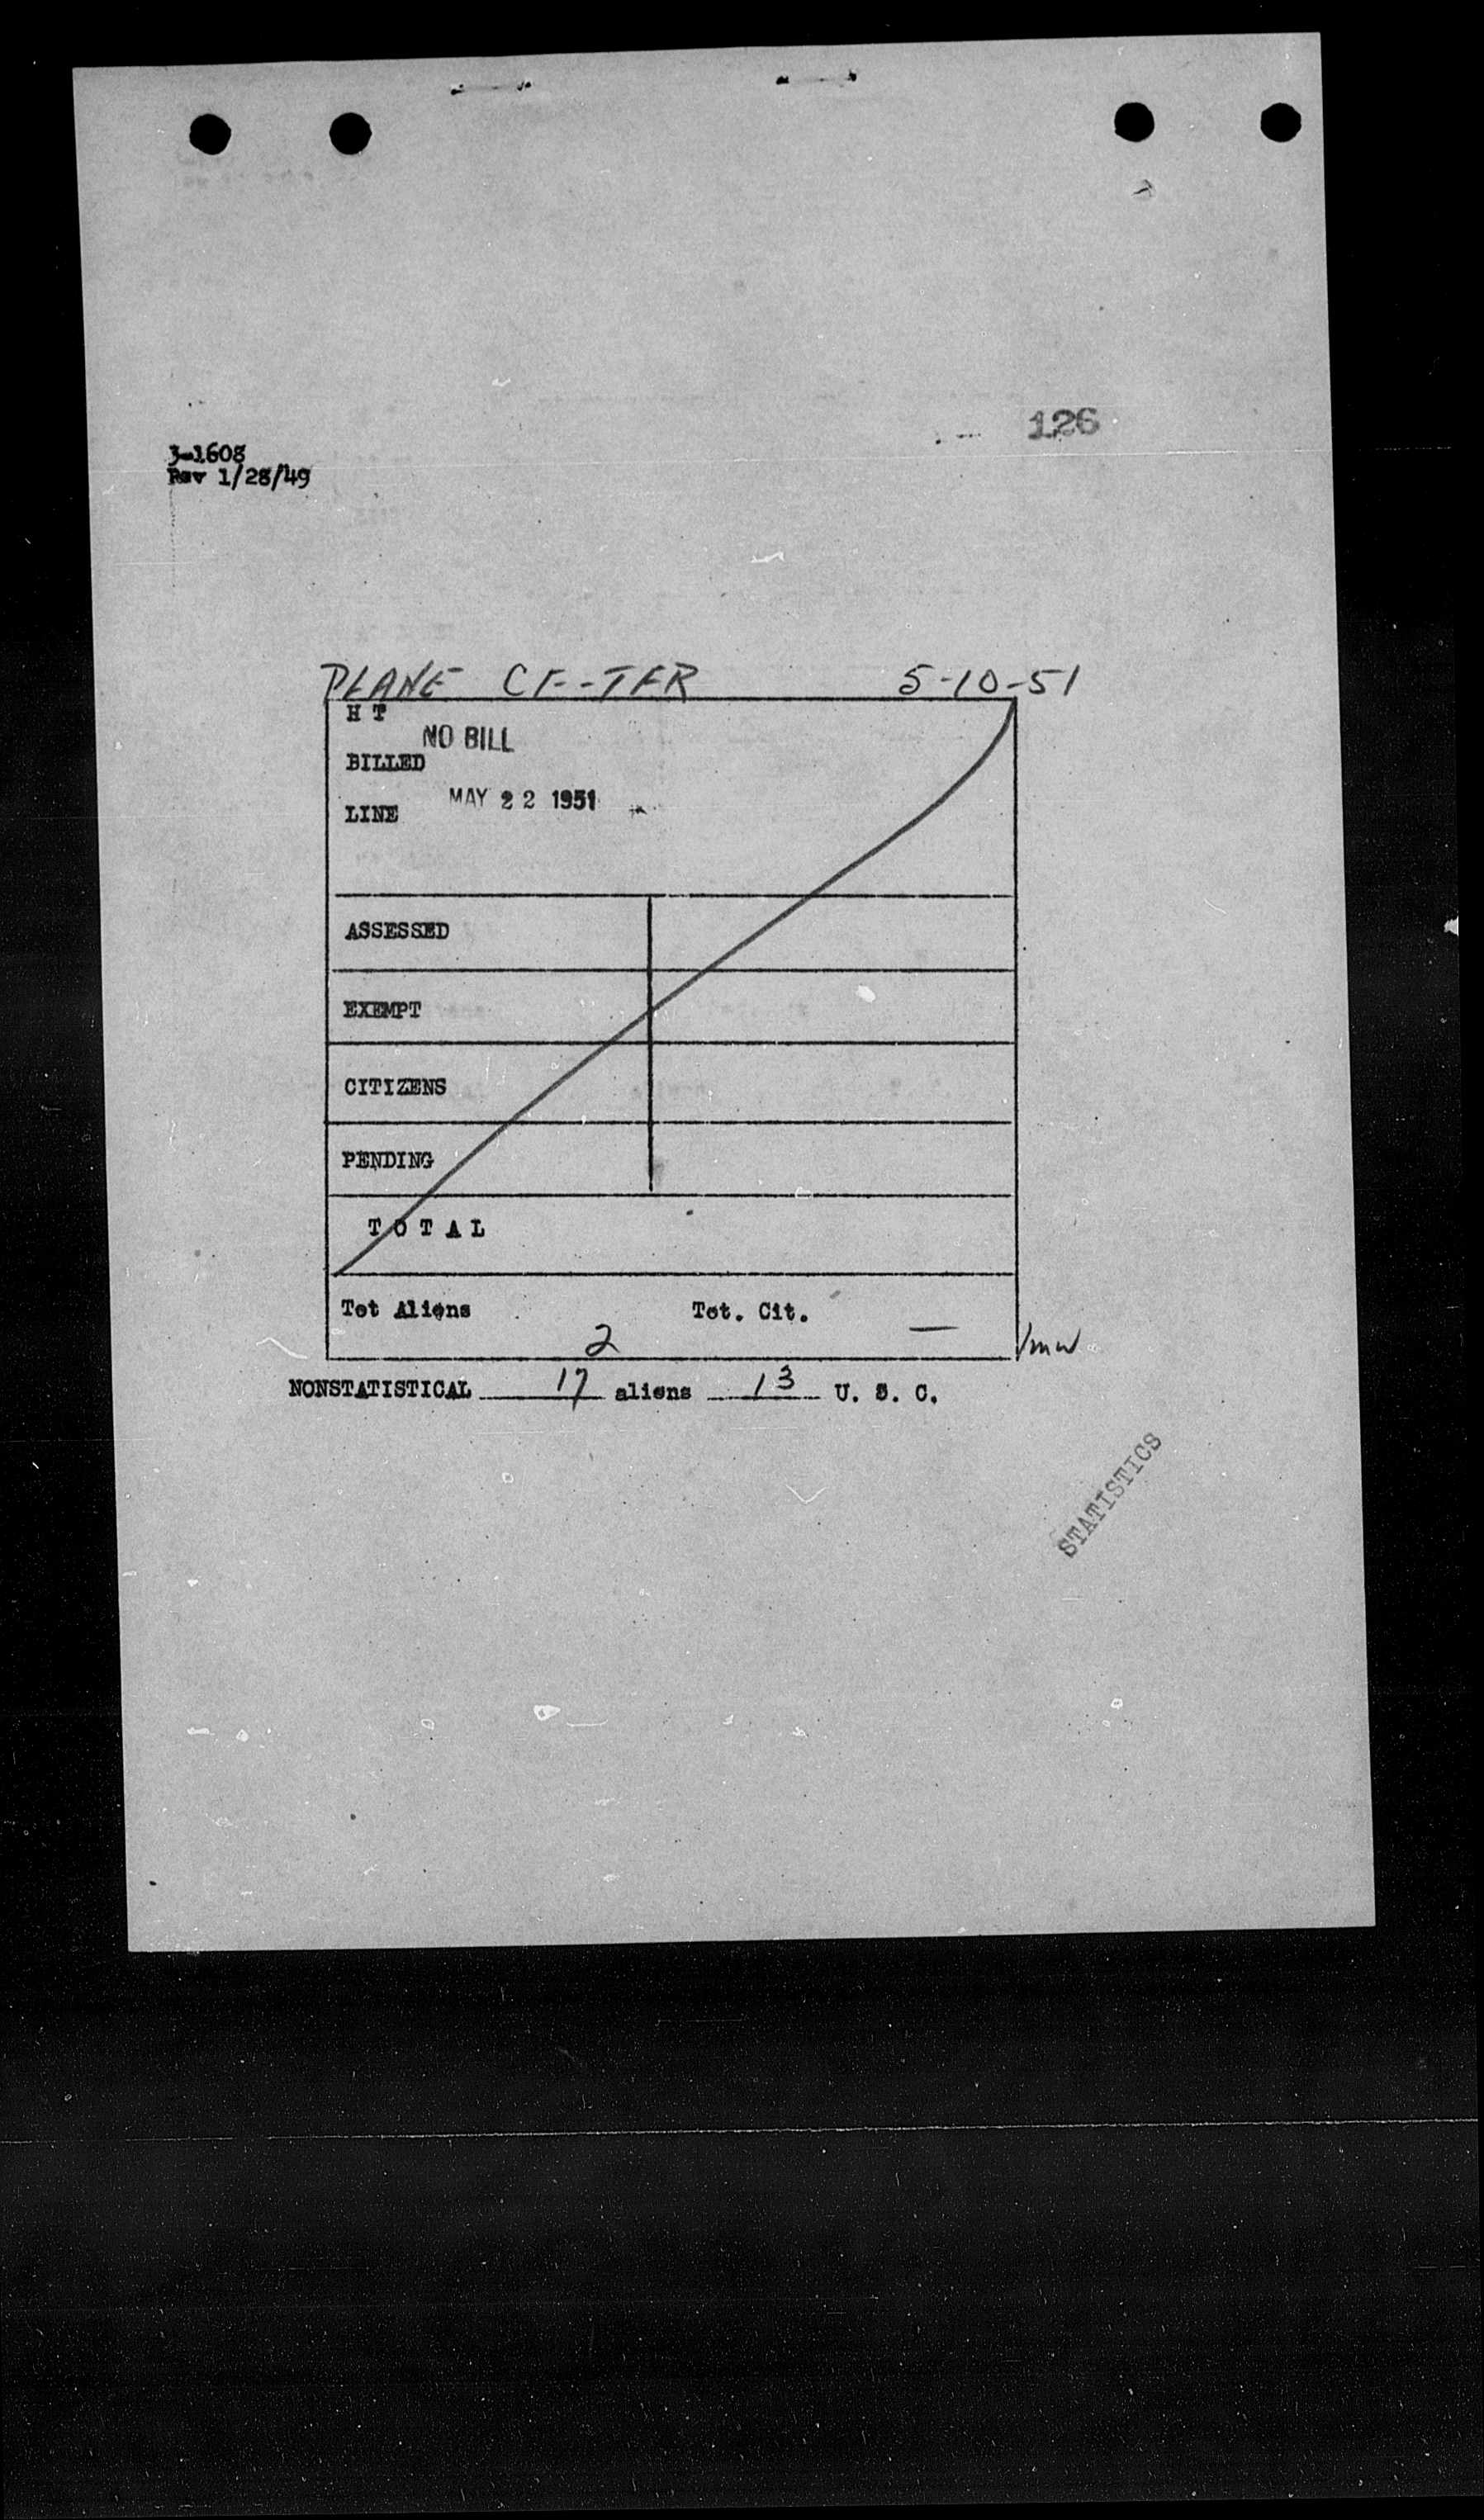 126
3-1608
Rev 1/28/49
PLANE CF-TFR 5-10-51
H T
NO BILL
BILLED
MAY 22 1951
LINE
ASSESSED
EXEMPT
CITIZENS
PENDING
T O T A L
Tot Aliens 2 Tot. Cit. —
/mw
NONSTATISTICAL 17 aliens 13 U. S. C.
STATISTICS